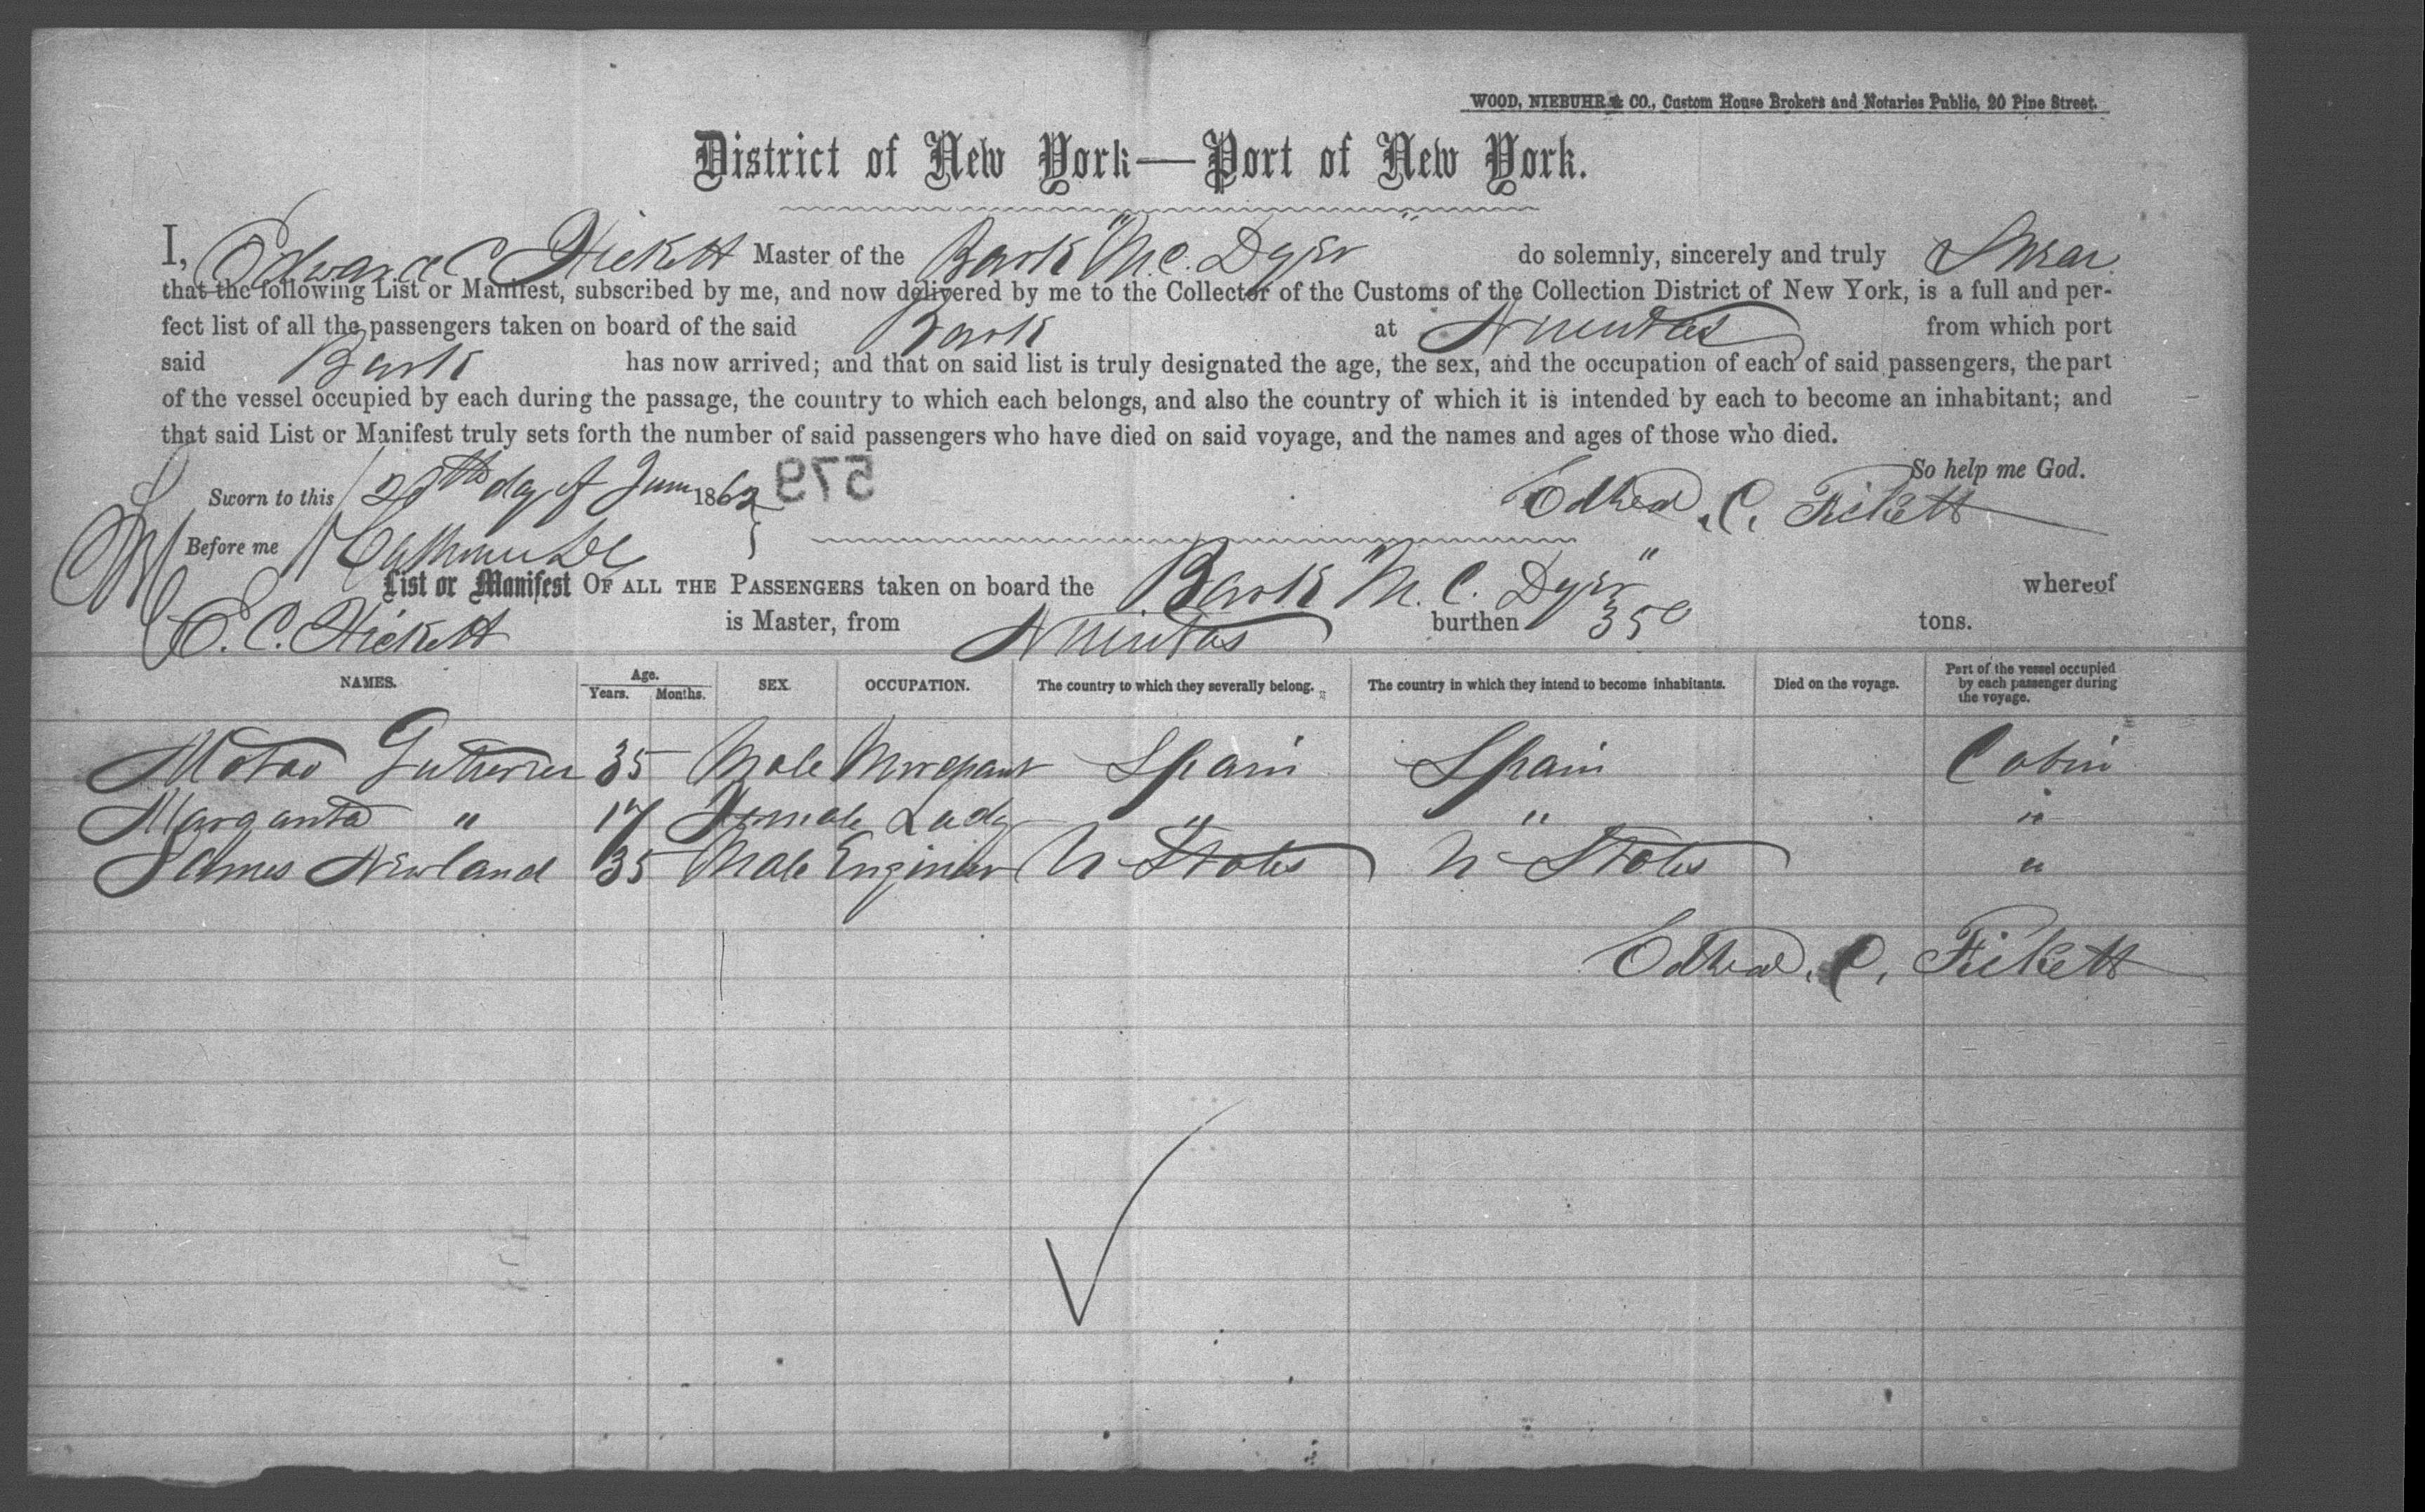 WOOD, NIEBUHR & CO., Custom House Brokers and Notaries Public, 20 Pine Street.
District of New York—Port of New York.
I, Edward C Fickett Master of the Bark "M.C. Dyer" do solemnly, sincerely and truly Swear
that the following List or Manifest, subscribed by me, and now delivered by me to the Collector of the Customs of the Collection District of New York, is a full and per-
fect list of all the passengers taken on board of the said Bark at Nuevitas from which port
said Bark has now arrived; and that on said list is truly designated the age, the sex, and the occupation of each of said passengers, the part
of the vessel occupied by each during the passage, the country to which each belongs, and also the country of which it is intended by each to become an inhabitant; and
that said List or Manifest truly sets forth the number of said passengers who have died on said voyage, and the names and ages of those who died.
So help me God.
Sworn to this day of June 1862 579
Edwd. C. Fickett
Before me
List or Manifest OF ALL THE PASSENGERS taken on board the Bark "M. C. Dyer" whereof
E. C. Fickett is Master, from Nuevitas burthen 350 tons.
NAMES. Age. Years. Months. SEX. OCCUPATION. The country to which they severally belong. The country in which they intend to become inhabitants. Died on the voyage. Part of the vessel occupied by each passenger during the voyage.
Gutierrez 35 Male Merchant Spain Spain Cabin
Margarita " 17 Female Lady " " "
James Newland 35 Male Engineer U States U States "
Edwd. C. Fickett